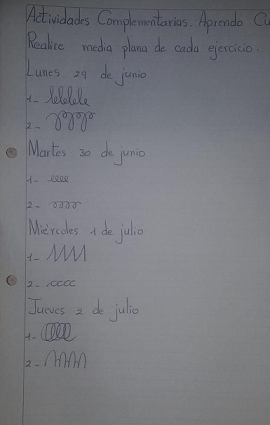 Actividades Complementarias. Aprendo
Realice media plana de cada ejercicio.
Lunes 29 de junio
1- lelelele
2-
Martes 30 de junio
1- eeee
2-
Miércoles 1 de julio
1-
2- cccc
Jueves 2 de julio
1-
2-